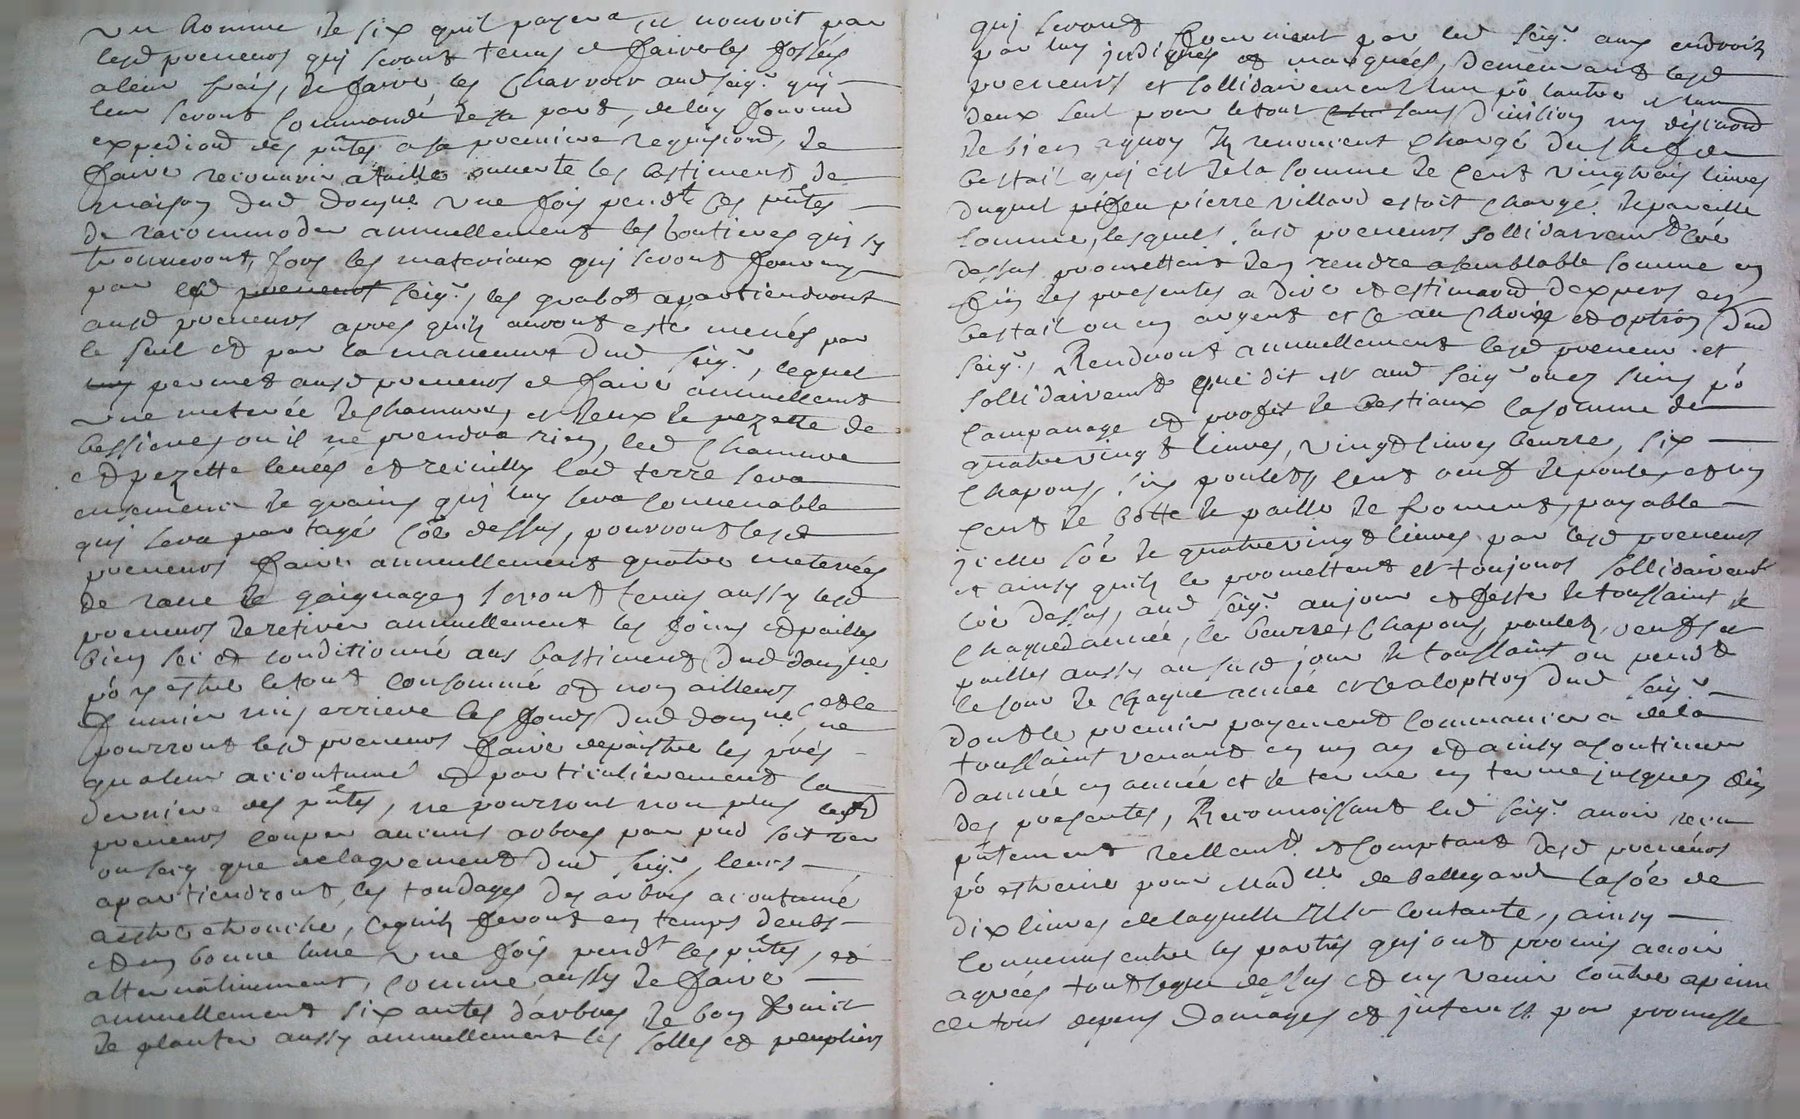 un homme de six quil payera et nourrit par
lesd preneurs qui seront tenus de faire les fossés
a leur frais, de faire les charrois aud seigr qui
leur seront commandé de sa part, de luy fournir
expediond des pntes a sa premiere requisiond, de
faire recouvrir a taille ouverte les bastiments de
maison dud domne une fois pendt les pntes
de racommoder annuellement les boutieres qui sy
trouveront, fors les materiaux qui seront fournys
par led preneurs seigr, les grabot apartiendront
ausd preneurs apres quils auront esté menés par
le seul et par la maneuvre dud seigr, lequel
permet ausd preneurs de faire annuellement
une meterée de chanvre, et deux de pezette de
bessieres ou il ne prendra rien, led chanvre
et pezette levées et recuilly lad terre sera
ensemencé de grains qui luy sera convenable
qui sera partagé coe dessus, pourront lesd
preneurs faire annuellement quatre meterées
de rave de gaignage, seront tenus aussy lesd
preneurs de retirer annuellement les foins et pailles
bien sec et conditionné aux bastiments dud domne
por y estre le tout consommé et non ailleurs et le
fumier mis erriere les fonds dud domne, ne
pourront lesd preneurs faire depaistre les prés
qua leur accoutumé et particulierement la
derniere des pntes, ne pourront non plus lesd
preneurs couper aucuns arbres par pied soit ver
ou secq que de lagrement dud seigr, leurs
apartiendront les tondages des arbres acoutumé
a estre etronché, cequils feront en temps deubs
et en bonne lune une fois pendt les pntes, et
alternativement, comme aussy de faire
annuellement six antes d'arbres de bon fruit
de planter aussy annuellement les solles et peupliers
qui seront
par luy indiqués et marqués, fournient par led seigr aux endroits demeurants lesd
preneurs et sollidairement lun po lautre et lun
deux seul pour le tout sans division ny discution
de biens aquoy ils renoncent chargé du chef de
bestail qui est de la somme de cent vingtrois livres
duquel feu pierre villard estoit chargé de pareille
somme, lesquels susd preneurs sollidairement coe
dessus promettent den rendre a semblable somme en
fin des presentes a dire et estimaond dexpers en
bestail ou en argent et ce au choix et option dud
seigr, Rendront annuellement lesd preneurs et
sollidairement que dit est aud seigr ou es siens po
lampanage et profit de bestiaux la somme de
quatrevingt livres, vingt livres beurre, six
chapons, six poulets, cent oeuf de poules et un
cent de botte de paille de froment, payable
icelle soe de quatrevingt livres par lesd preneurs
et ainsy quils le promettent et toujours sollidairement
coe dessus, aud seigr au jour et feste de toussaint de
chaque année, le beurre, chapons, poulets, oeufs et
pailles aussy au susd jour de toussaint ou pendt
le cour de chaque année et ce a loption dud seigr
dont le premier payement commancera de la
toussaint venant en un an et ainsy a continuer
dannée en année et de terme en terme jusques fin
des presentes, Reconnoissant led seigr avoir receu
pntement reellemt et comptant desd preneurs
po estreine pour Madlle de Bellegard la soe de
dix livres de laquelle elle contante, ainsy
convenus entre les parties qui ont promis avoir
agreés tout ceque dessus et ny venir contre a peine
de tous depens domages et interest par promesse